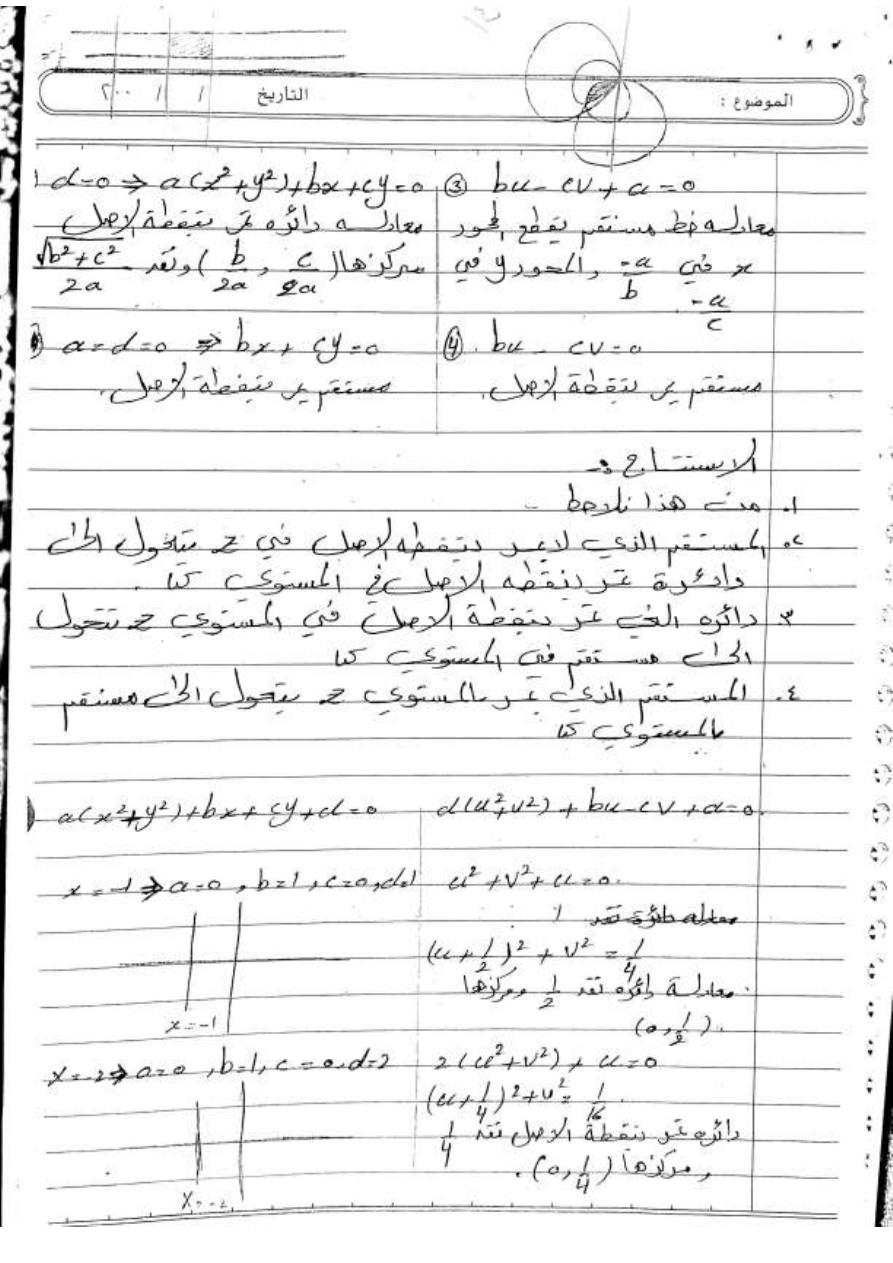 الموضوع :
التاريخ / / ٢٠٠
d=0 ⇒ a(x²+y²)+bx+cy=0
معادلـه دائره تمر بنقطة الاصل
مركزها (b/2a , c/2a) ونقـ √b²+c²/2a
③ bu - cv + a = 0
معادله خط مستقم يقطع المحور
x في -a/b والمحور y في
-a/c
a=d=0 ⇒ bx + cy =0
مستقم يمر بنقطة الاصل.
④. bu - cv=0
مستقم يمر بنقطة الاصل.
الاستنتاج :-
١. من هذا نلاحظ -
٢. المستقم الذي لا يمر بنقطه الاصل في z يتحول الى
دائرة تمر بنقطه الاصل في المستوي
٣ دائره التي تمر بنقطة الاصل في المستوي z تتحول
الى مستقم في المستوي
٤. المستقم الذي يمر بالمستوي z يتحول الى مستقم
بالمستوي
a(x²+y²)+bx+cy+d=0 d(u²+v²) + bu-cv+a=0.
x=-1 ⇒ a=0 , b=1 , c=0 , d=1 u²+v²+u=0.
معادله دائرة نقـ 1
(u+1/2)² + v² = 1/4
معادلـة دائره نقـ 1/2 ومركزها
(0,1/2).
x=-1
x=-2 ⇒ a=0 , b=1, c=0, d=2 2(u²+v²) + u=0
(u+1/4)²+v²= 1/16.
دائره تمر بنقطة الاصل نقـ 1/4
ومركزها (0,1/4).
x=-2